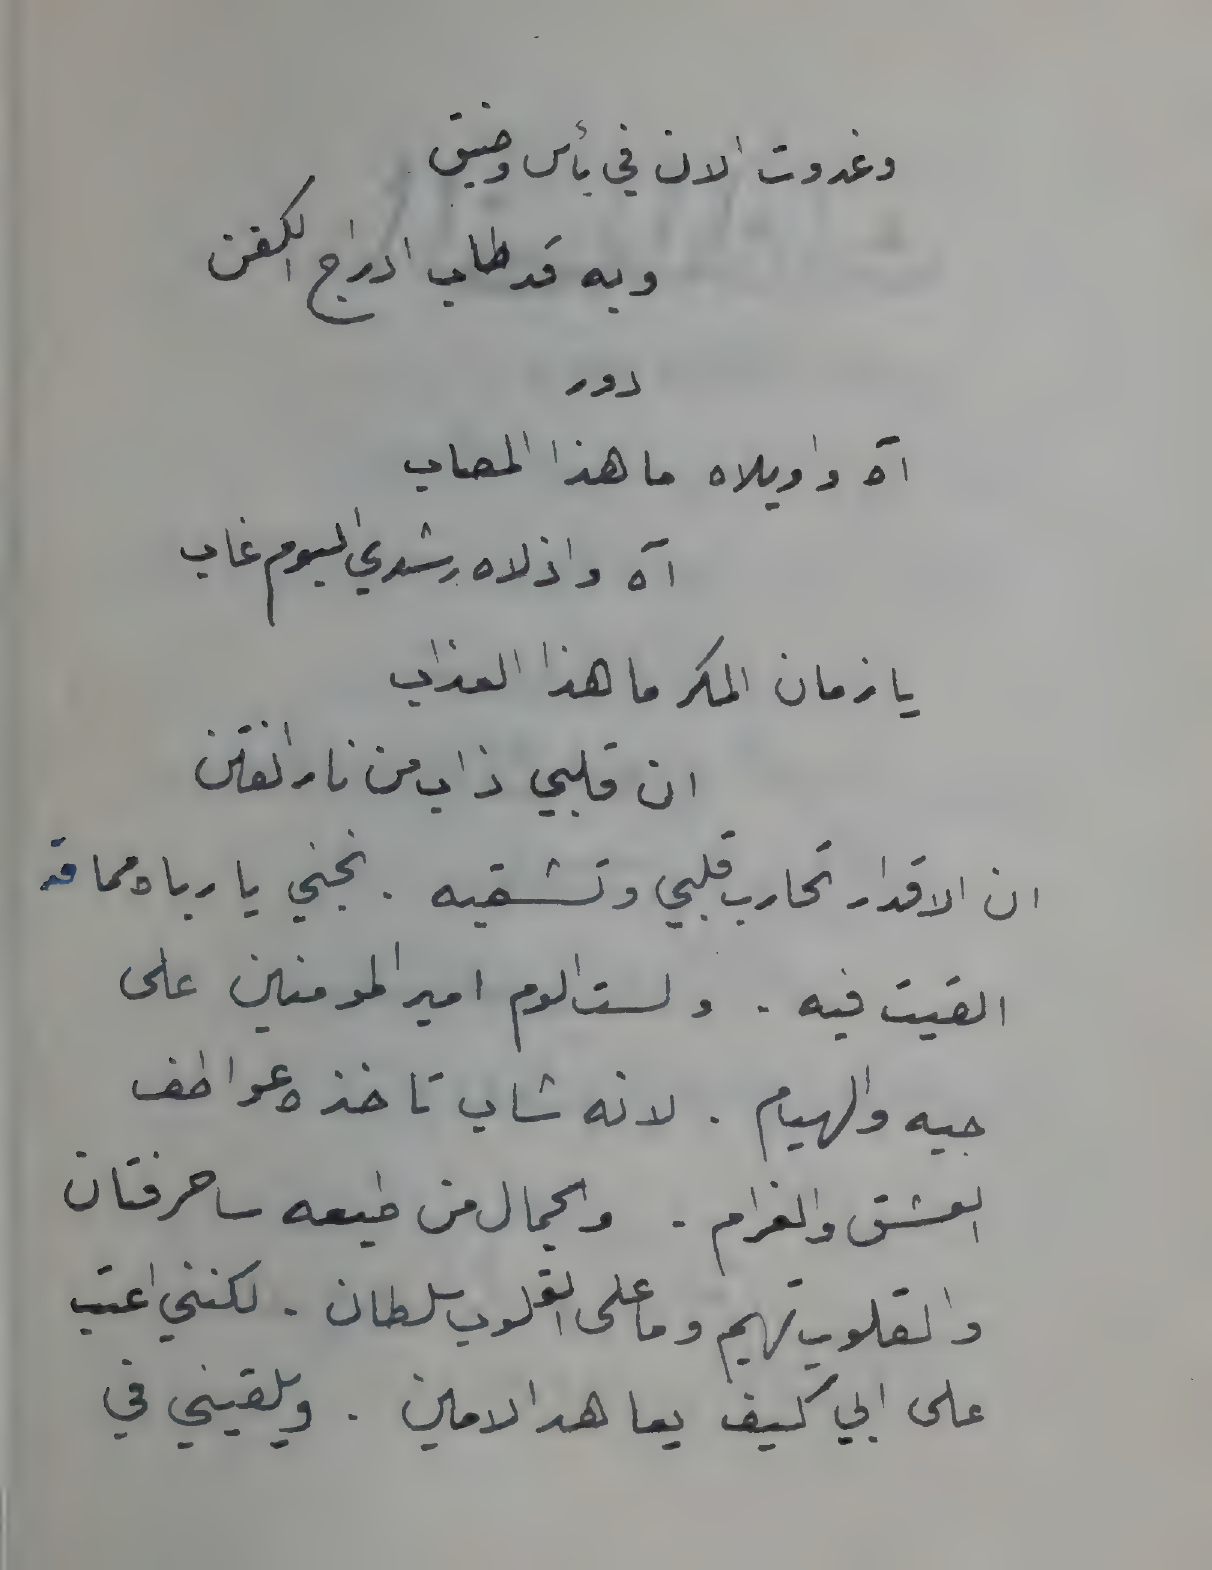 وغدوت الان في يأس وضيق
وبه قد طاب ادراج الكفن
دور
آه واويلاه ما هذا المصاب
آه واذلاه رشدي اليوم غاب
يا زمان المكر ما هذا العذاب
ان قلبي ذاب من نار الفتن
ان الاقدار تحارب قلبي وتشقيه . نجني يا رباه مما قد
القيت فيه . ولست الوم امير المومنين على
حبه والهيام . لانه شاب تاخذه عواطف
العشق والغرام . والجمال من طبعه ساحر فتان
والقلوب تهيم وما على القلوب سلطان . لكنني اعتب
على ابي كيف يعاهد الامين . ويلقيني في